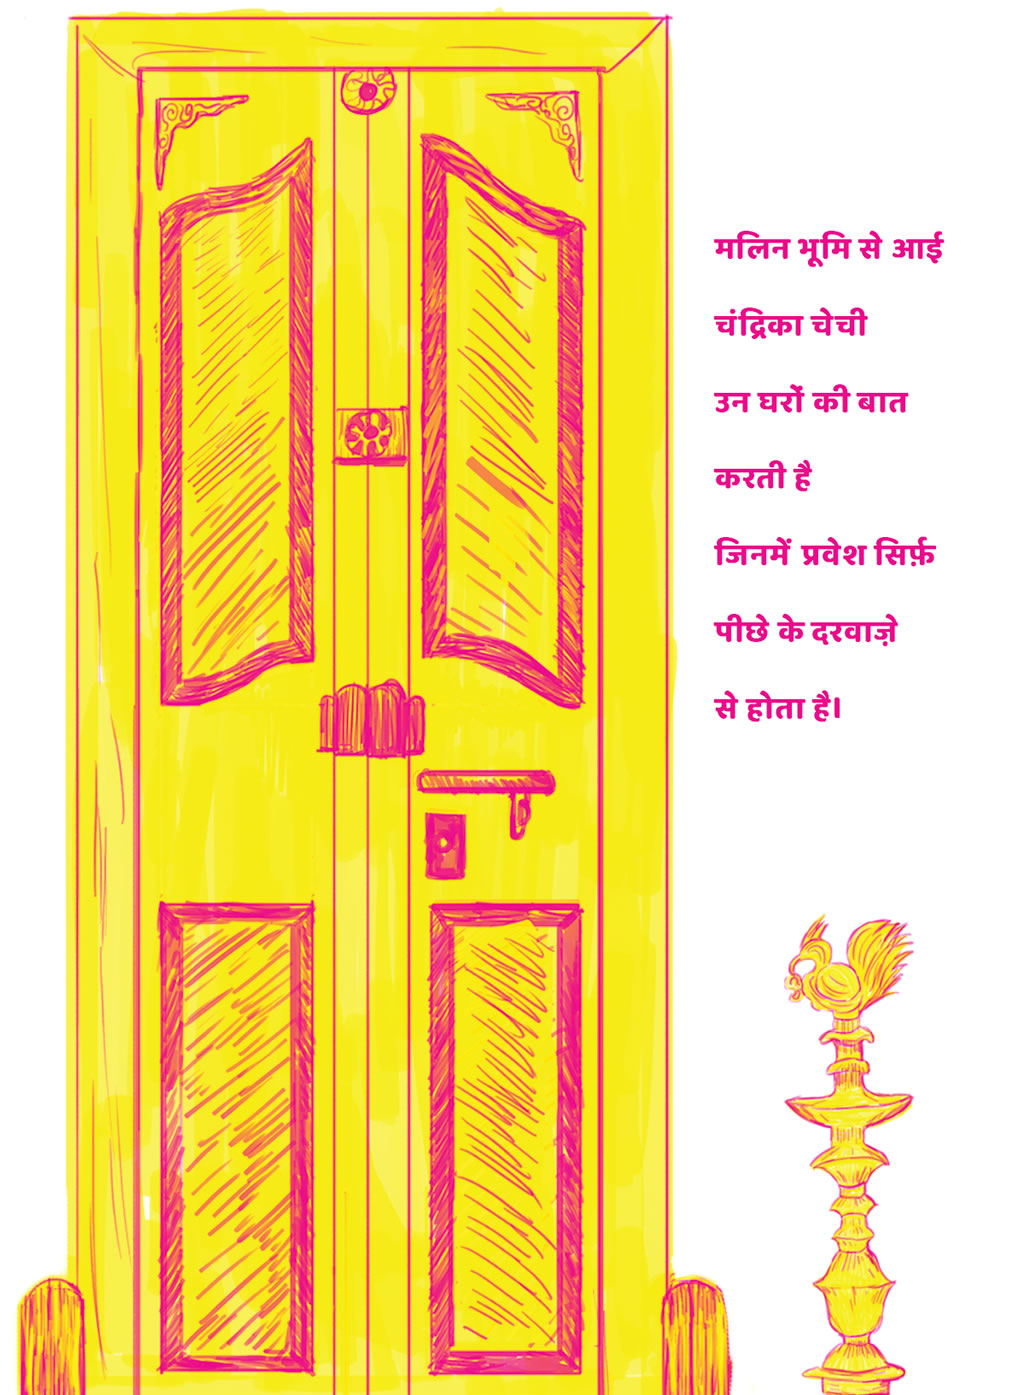 मलिन भूमि से आई
चंद्रिका चेची
उन घरों की बात
करती है
जिनमें प्रवेश सिर्फ़
पीछे के दरवाज़े
से होता है।